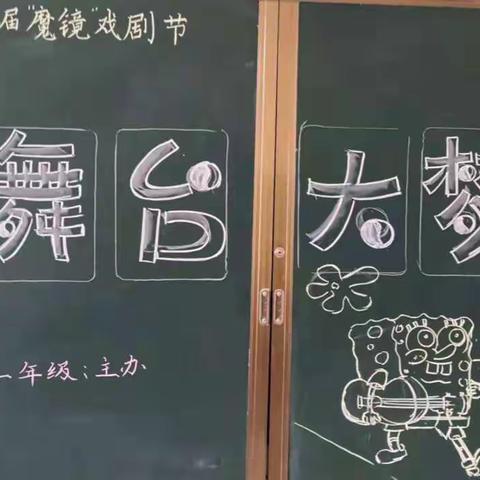 届"魔镜"戏剧节
舞台大梦
年级:主办